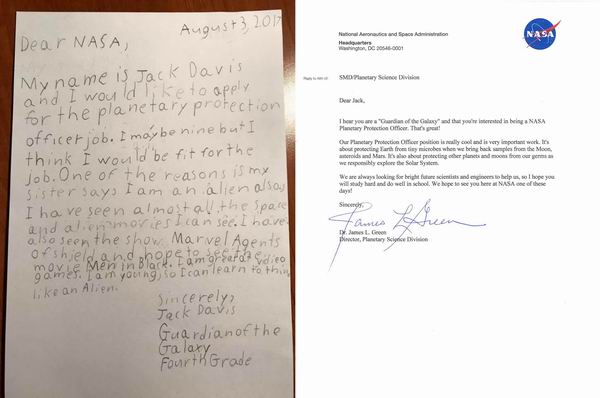 August 3, 2017
Dear NASA,
My name is Jack Davis
and I would like to apply
for the planetary protection
officer job. I may be nine but I
think I would be fit for the
job. One of the reasons is my
sister says I am an alien also
I have seen almost all the space
and alien movies I can see. I have
also seen the show Marvel Agents
of shield and hope to see the
movie Men in Black. I am great at video
games. I am young, so I can learn to think
like an Alien.
Sincerely,
Jack Davis
Guardian of the
Galaxy
Fourth Grade
National Aeronautics and Space Administration
Headquarters
Washington, DC 20546-0001
NASA
Reply to Attn of:
SMD/Planetary Science Division
Dear Jack,
I hear you are a "Guardian of the Galaxy" and that you're interested in being a NASA
Planetary Protection Officer. That's great!
Our Planetary Protection Officer position is really cool and is very important work. It's
about protecting Earth from tiny microbes when we bring back samples from the Moon,
asteroids and Mars. It's also about protecting other planets and moons from our germs as
we responsibly explore the Solar System.
We are always looking for bright future scientists and engineers to help us, so I hope you
will study hard and do well in school. We hope to see you here at NASA one of these
days!
Sincerely,
James L Green
Dr. James L. Green
Director, Planetary Science Division